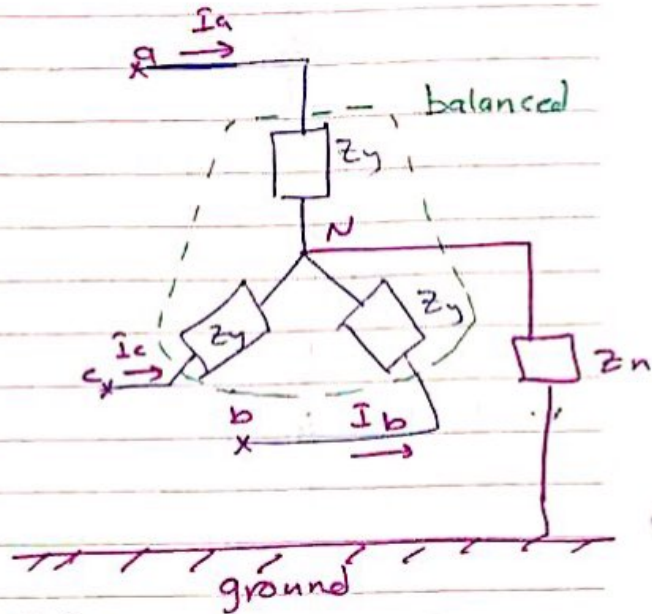 Ia
a
balanced
Zy
N
Zy
Zy
Ic
c
Zn
b
Ib
ground